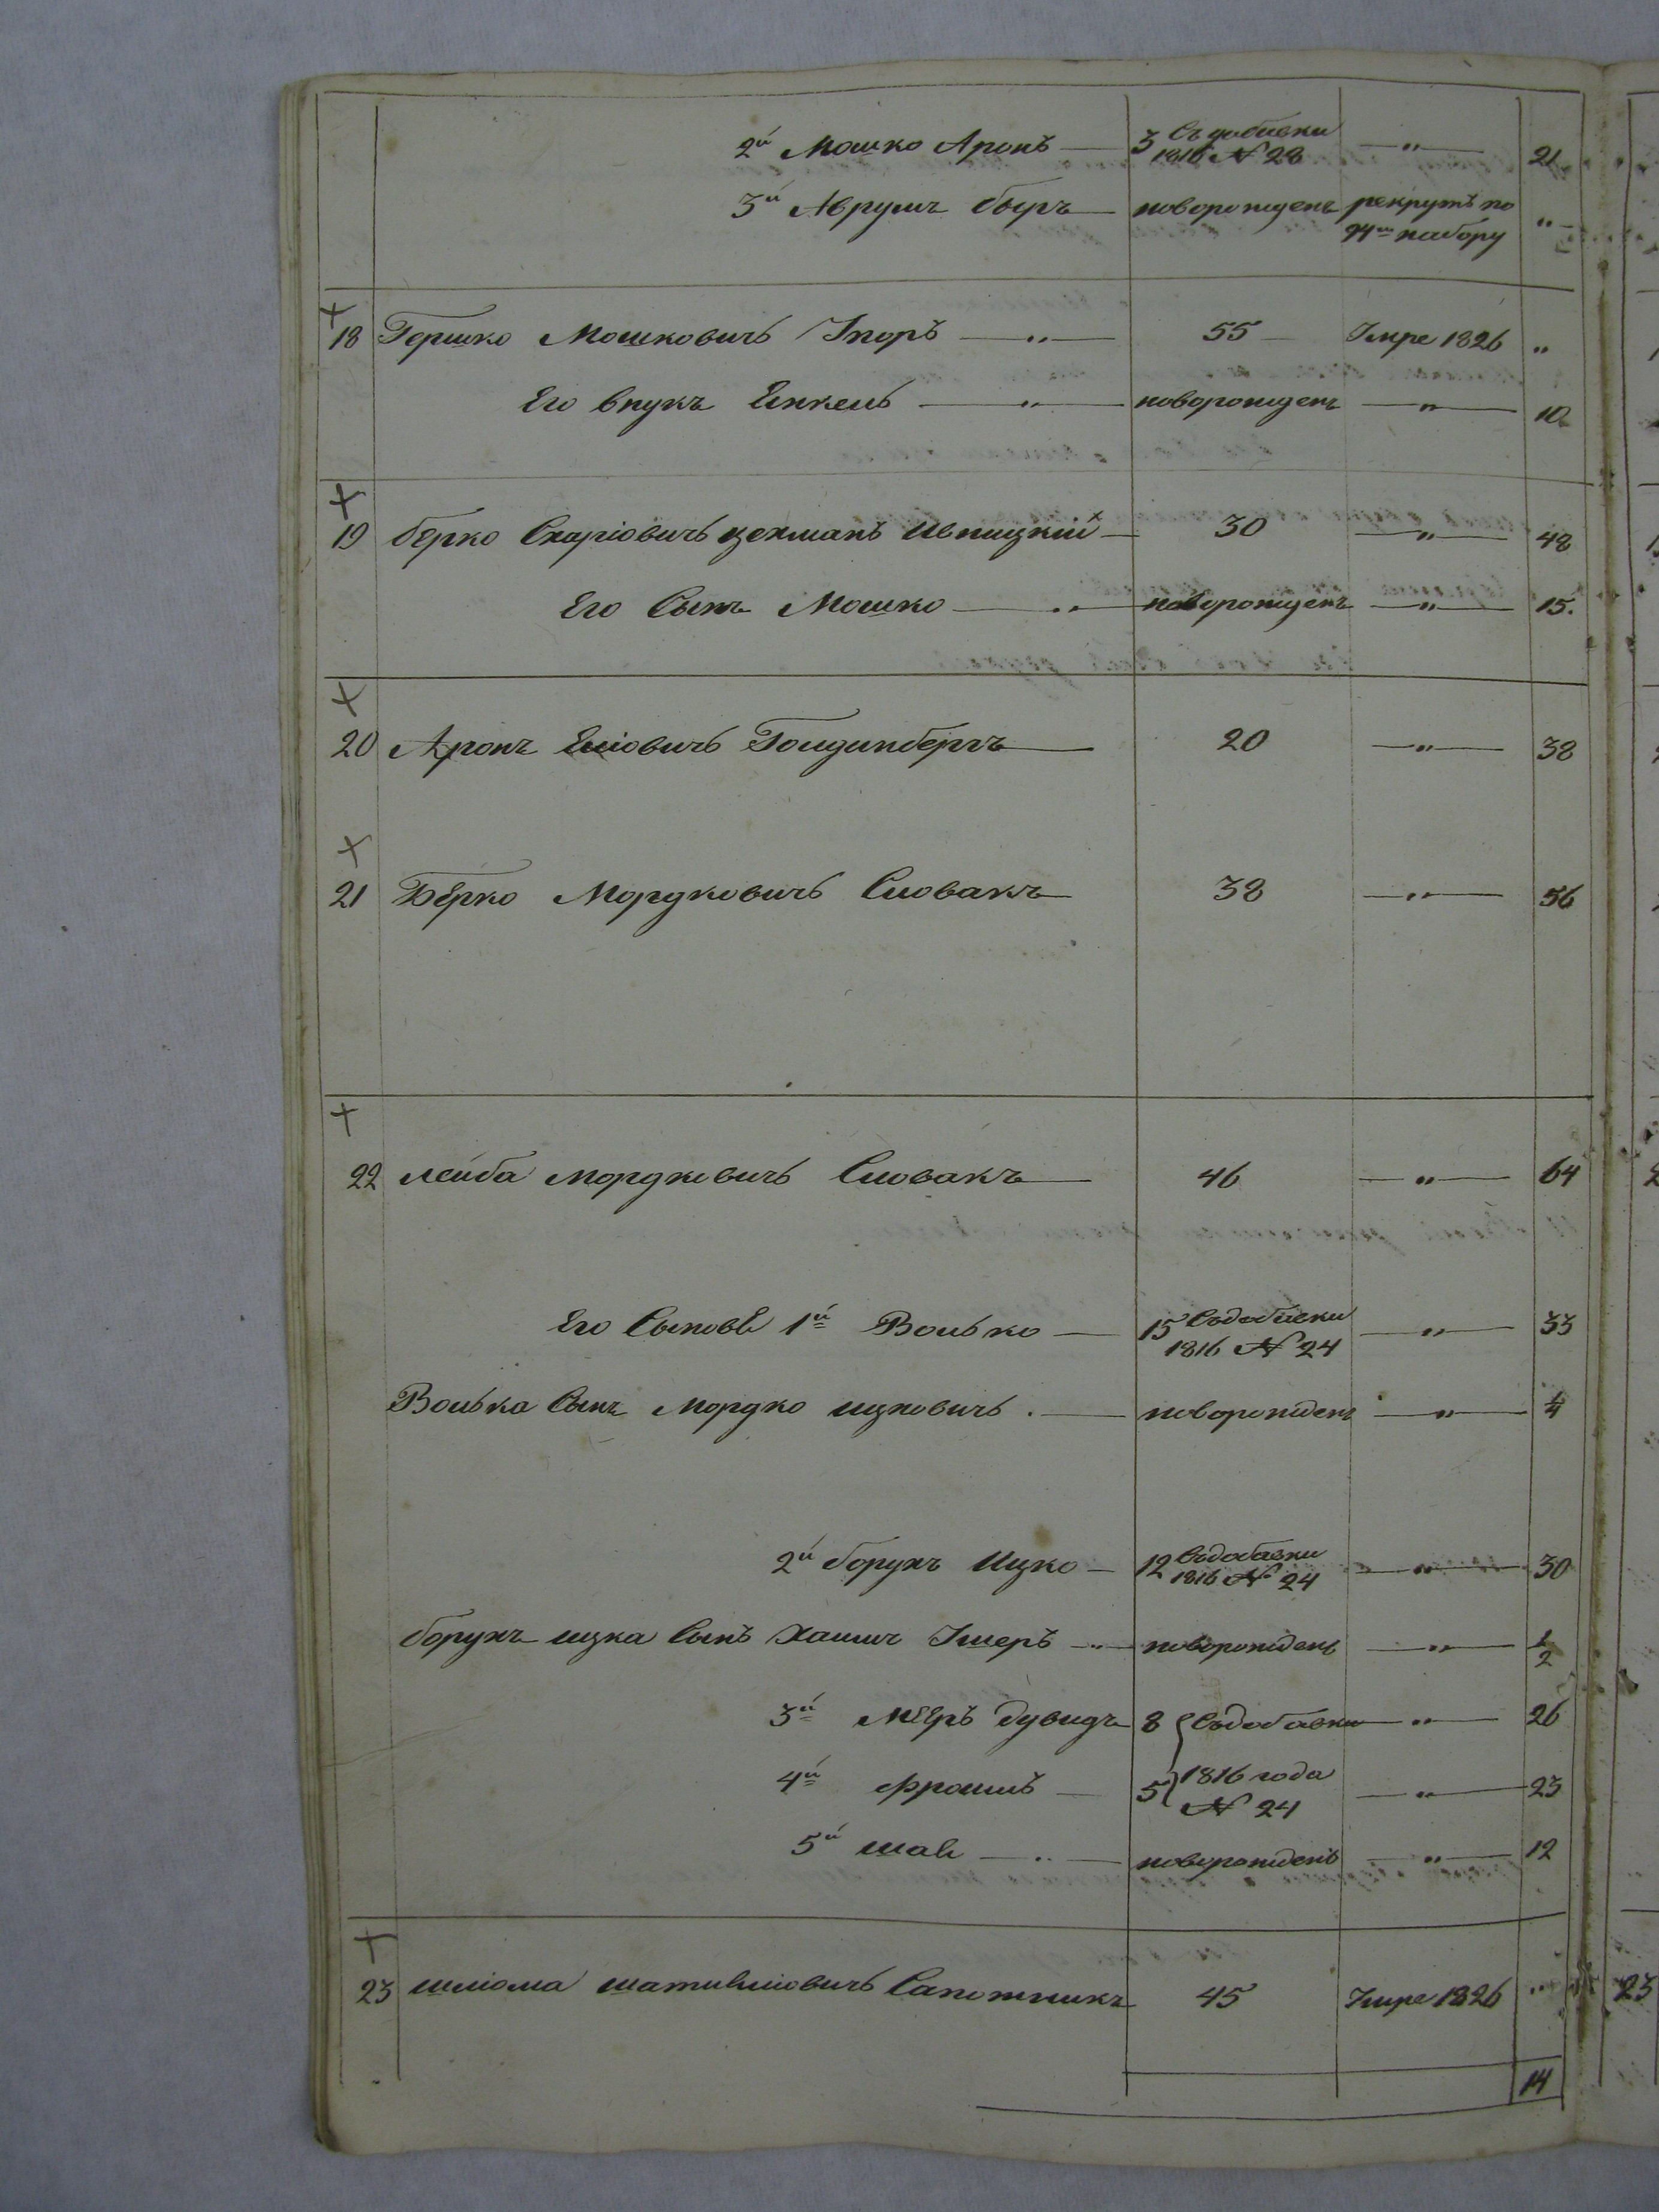 2й Мошко Аронъ — 3 Съ добавки 1816 № 28 — " — 21
3й Аврумъ Беръ — новорожденъ рекрутъ по
94му набору "
18 Гершко Мошковичъ — " — 55 — Умре 1826 "
Его внукъ Енкель — " — новорожденъ — " — 10
19 Берко Схаріовичъ цехманъ Ивницкій — 30 — " — 48
Его Сынъ Мошко — " — новорожденъ — " — 15.
20 Аронъ Еліовичъ Голдинбергъ — 20 — " — 38
21 Берко Мордковичъ Словакъ — 38 — " — 56
22 лейба мордковичъ Словакъ — 46 — " — 64
Его Сыновѣ 1й Волько — 15 Съ добавки 1816 № 24 — " — 33
Волька Сынъ Мордко ицковичъ . — новорожденъ — " — 1/4
2й борухъ Ицко — 12 Съ добавки 1816 № 24 — " — 30
борухъ ицка Сынъ Хаимъ Ушеръ — " — новорожденъ — " — 1/2
3й меѣръ дувидъ — 8 Съ добавки — " — 26
4й фроимъ — 5 1816 года № 24 — " — 23
5й — " — новорожденъ — " — 12
23 шліома Сапожникъ 45 Умре 1826 "
14
23